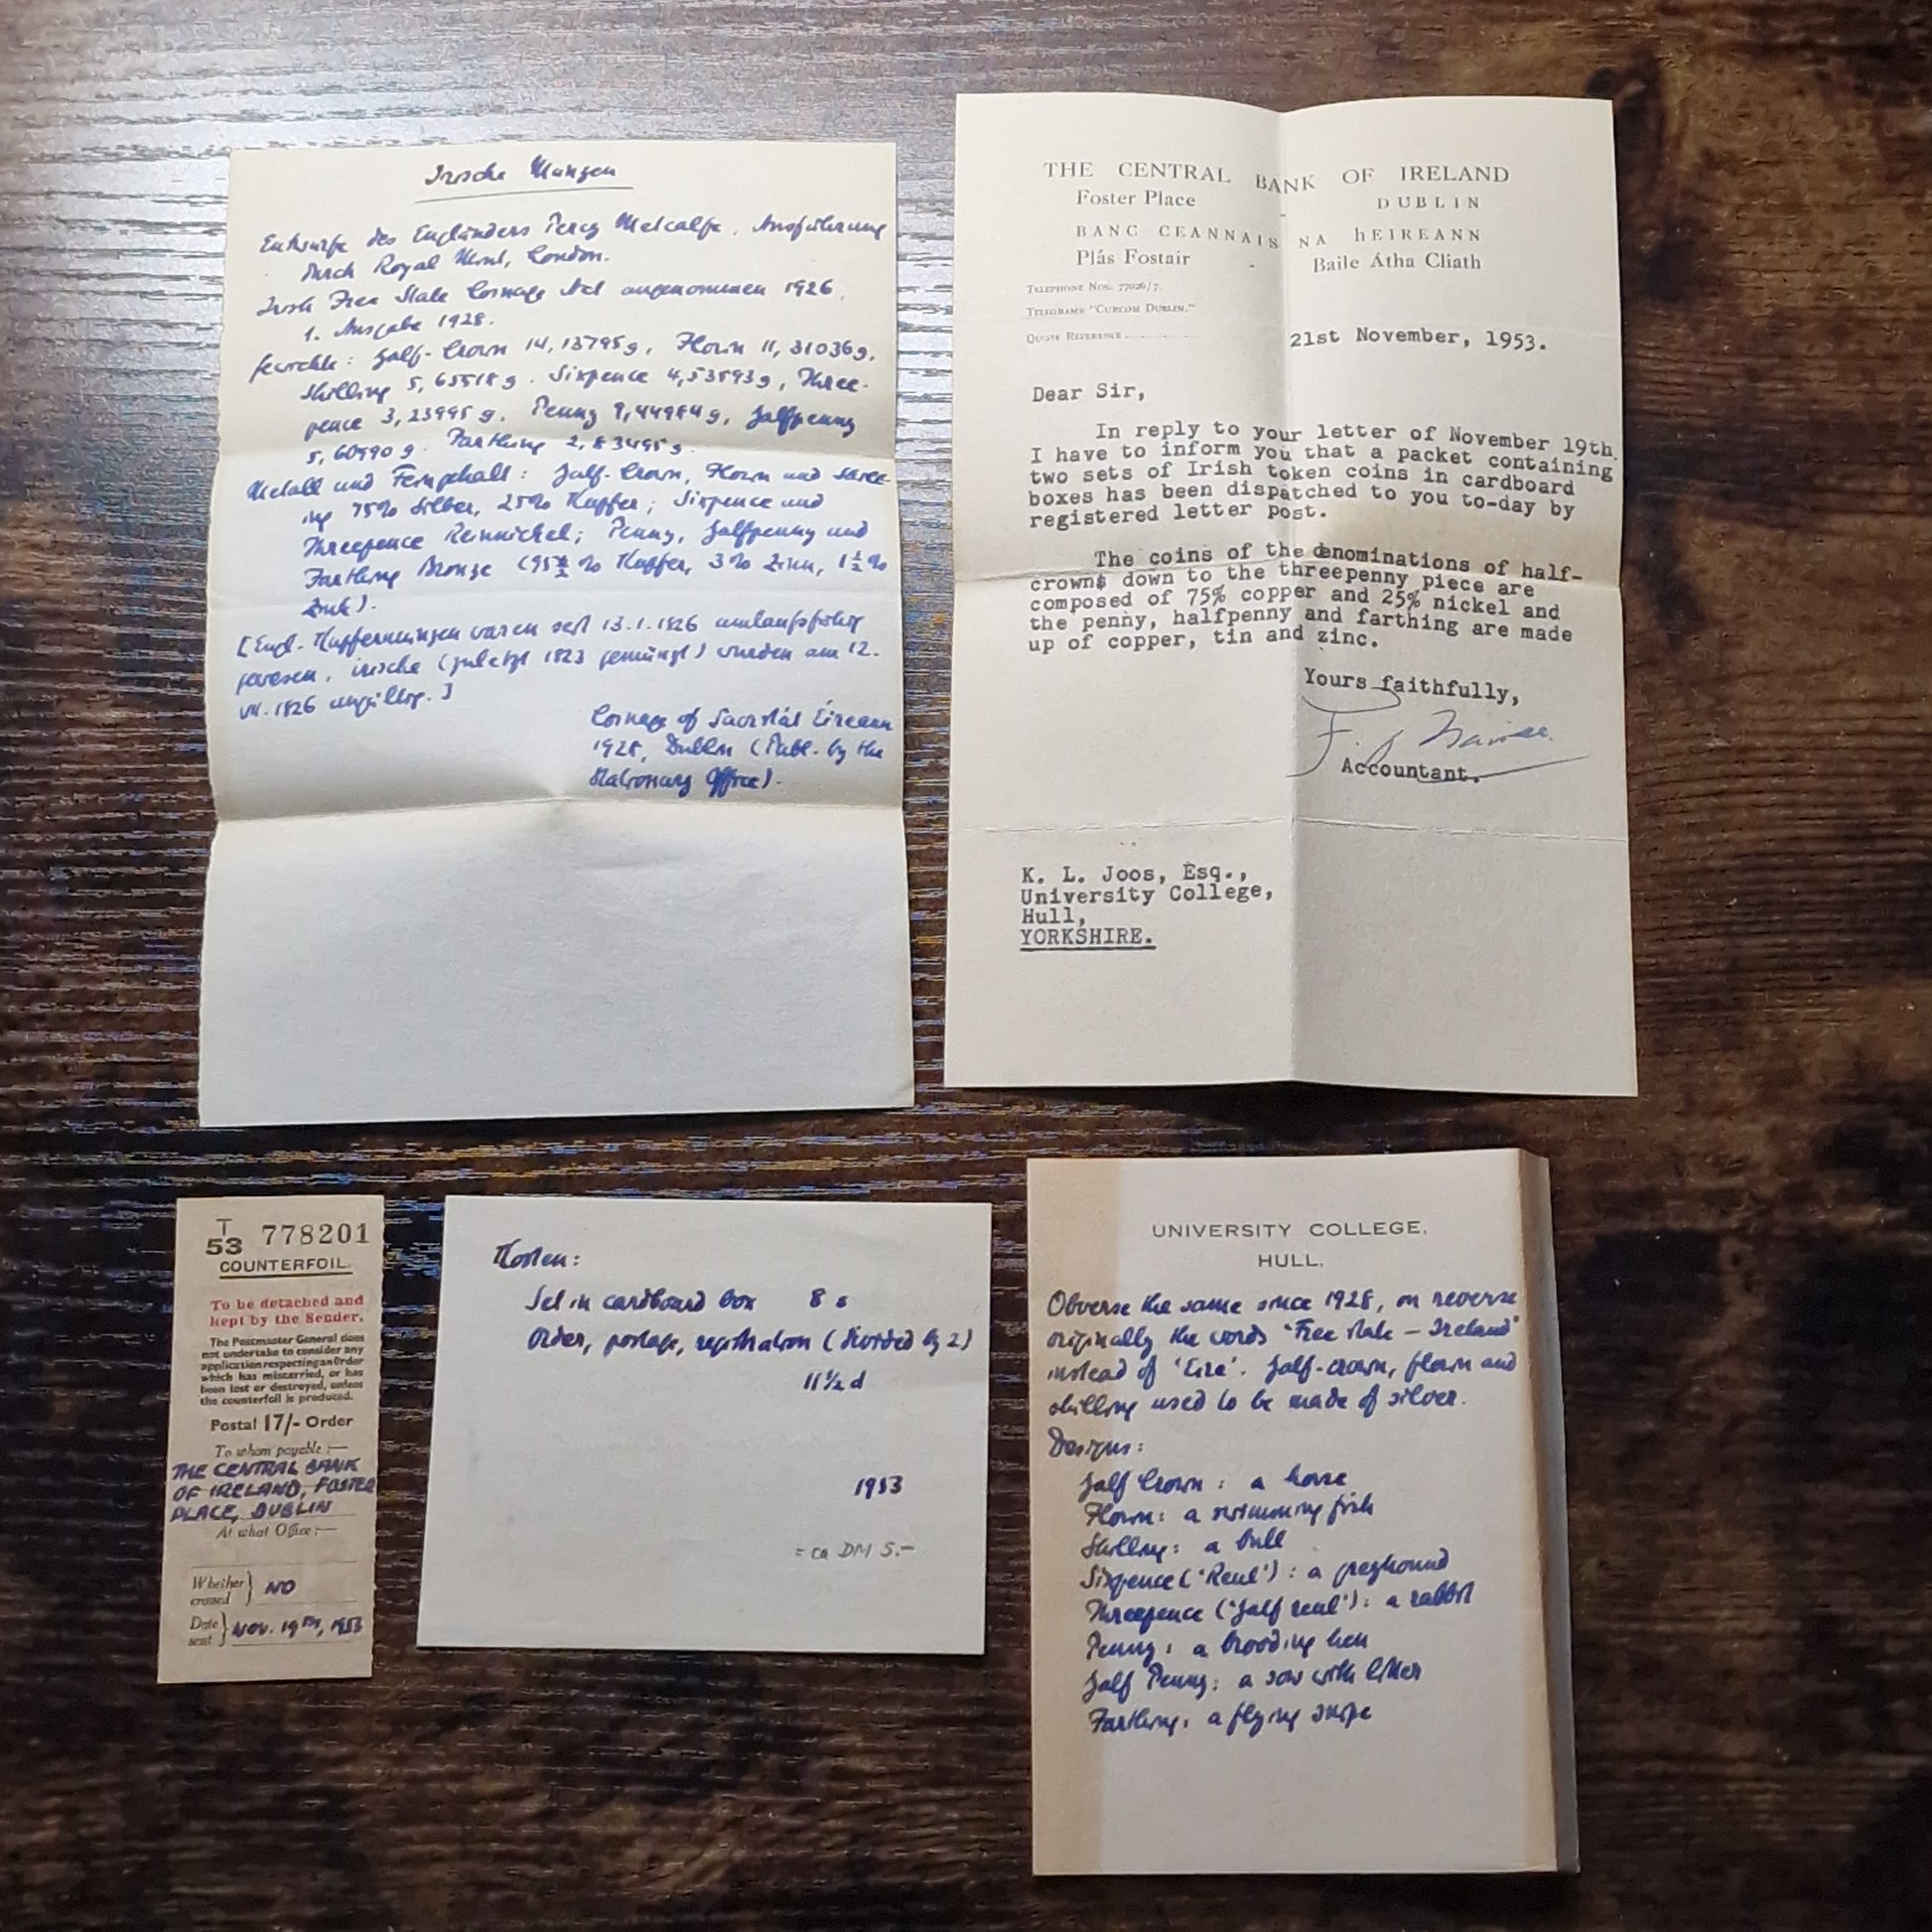 Irische Münzen
Entwürfe des Engländers Percy Metcalfe, Ausführung
durch Royal Mint, London.
Irish Free State Coinage Act angenommen 1926.
1. Ausgabe 1928.
Gewichte: Half-Crown 14,13795g, Florin 11,31036g,
Shilling 5,65518g. Sixpence 4,53593g, Three-
pence 3,23995 g. Penny 9,44984g, Halfpenny
5,60990 g. Farthing 2,83495g.
Metall und Feingehalt: Half-Crown, Florin und
75% Silber, 25% Kupfer; Sixpence und
Threepence Reinnickel; Penny, Halfpenny und
Farthing Bronze (95½ % Kupfer, 3% Zinn, 1½ %
Zink).
[Engl. Kupfermünzen waren seit 13.1.1826 umlaufsfähig
gewesen, irische (zuletzt 1823 gemünzt) wurden am 12.
VII. 1826 ungültig.]
Coinage of Saorstát Éireann
1928, Dublin (Publ. by the
Stationary Office).
THE CENTRAL BANK OF IRELAND
Foster Place DUBLIN
BANC CEANNAIS NA hEIREANN
Plás Fostair Baile Átha Cliath
TELEPHONE NOS. 77026/7.
TELEGRAMS "CURCOM DUBLIN."
QUOTE REFERENCE
21st November, 1953.
Dear Sir,
In reply to your letter of November 19th.
I have to inform you that a packet containing
two sets of Irish token coins in cardboard
boxes has been dispatched to you to-day by
registered letter post.
The coins of the denominations of half-
crowns down to the threepenny piece are
composed of 75% copper and 25% nickel and
the penny, halfpenny and farthing are made
up of copper, tin and zinc.
Yours faithfully,
Accountant.
K. L. Joos, Esq.,
University College,
Hull,
YORKSHIRE.
T
53 778201
COUNTERFOIL
To be detached and
kept by the Sender.
The Postmaster General does
not undertake to consider any
application respecting an Order
which has miscarried, or has
been lost or destroyed, unless
the counterfoil is produced.
Postal 17/- Order
To whom payable :—
THE CENTRAL BANK
OF IRELAND, FOSTER
PLACE, DUBLIN
At what Office :—
Whether crossed } NO
Date sent } NOV. 19TH, 1953
Kosten:
Set in cardboard box 8 s
Order, postage, registration (divided by 2)
11½ d
1953
= ca DM 5.-
UNIVERSITY COLLEGE,
HULL.
Obverse the same since 1928, on reverse
originally the words 'Free State – Ireland'
instead of 'Eire'. Half-crown, florin and
shilling used to be made of silver.
Designs:
Half Crown: a horse
Florin: a swimming fish
Shilling: a bull
Sixpence ('Reul'): a greyhound
Threepence ('Half reul'): a rabbit
Penny: a brooding hen
Half Penny: a sow with litter
Farthing: a flying snipe